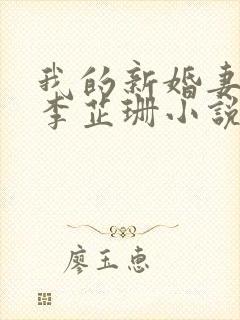 我的新婚妻
李芷珊小說
廖玉惠